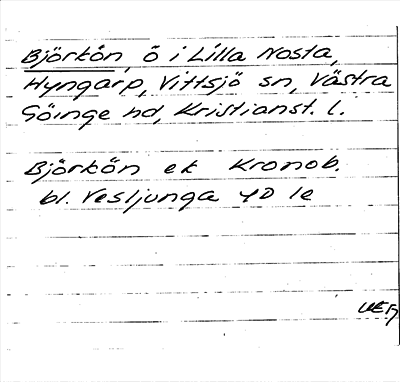 Björkön, ö i Lilla Nosta,
Hyngarp, Vittsjö sn, Västra
Göinge hd, Kristianst. l.
Björkön ek Kronob.
bl. Vesljunga 4D 1e